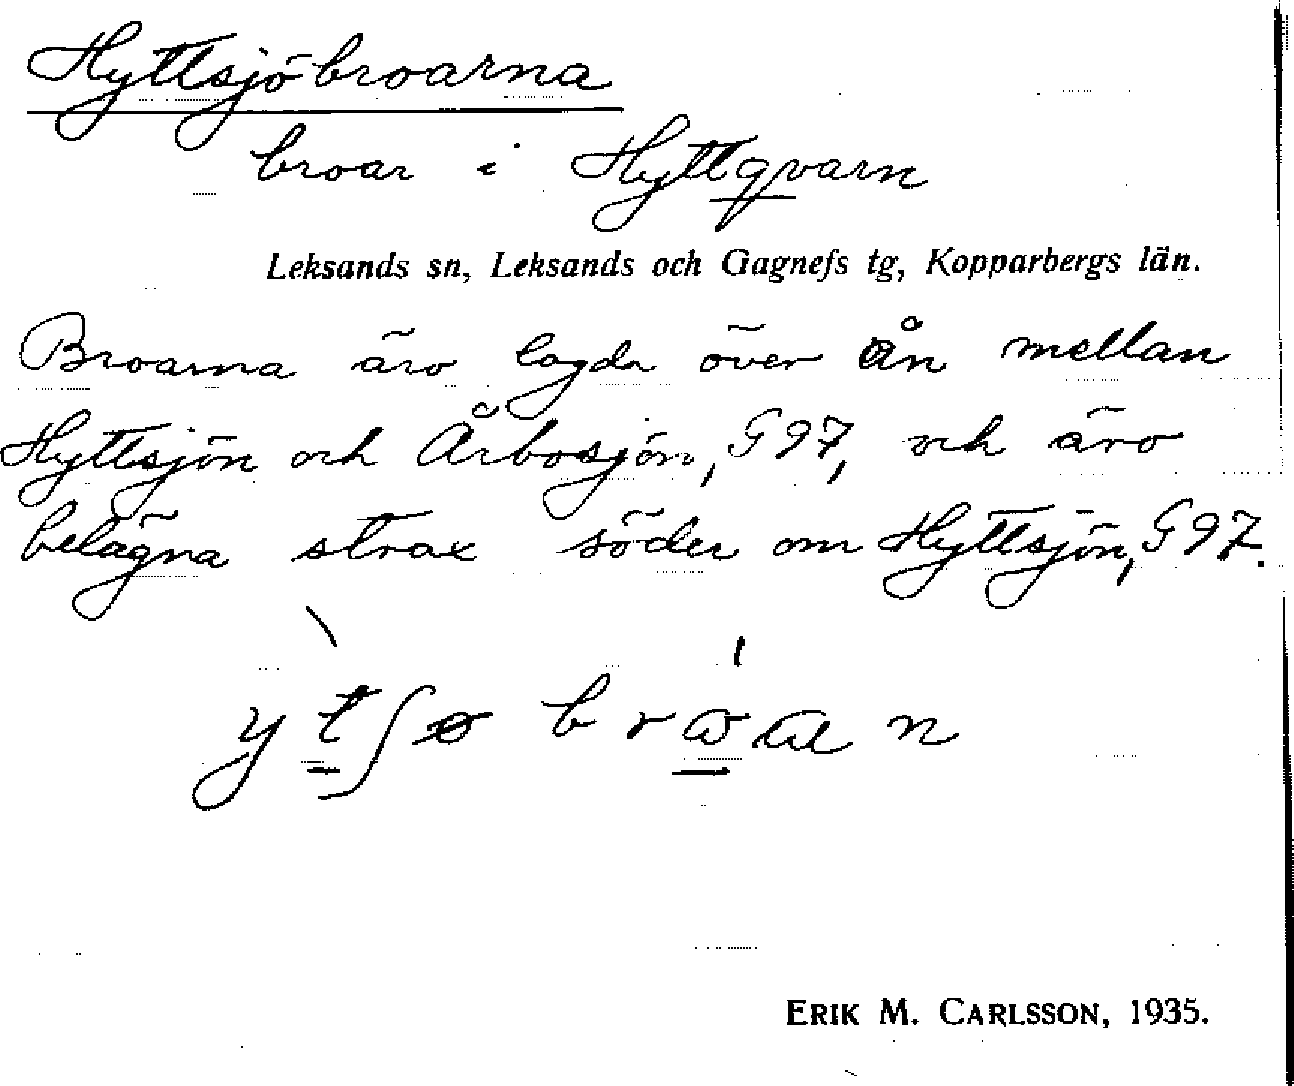 Hyttsjöbroarna
broar i Hyttqvarn
Leksands sn, Leksands och Gagnefs tg, Kopparbergs län.
Broarna äro lagda över ån mellan
Hyttsjön och Årbosjön, G 97, och äro
belägna strax söder om Hyttsjön, G 97.
ytʃø brωαn
ERIK M. CARLSSON, 1935.